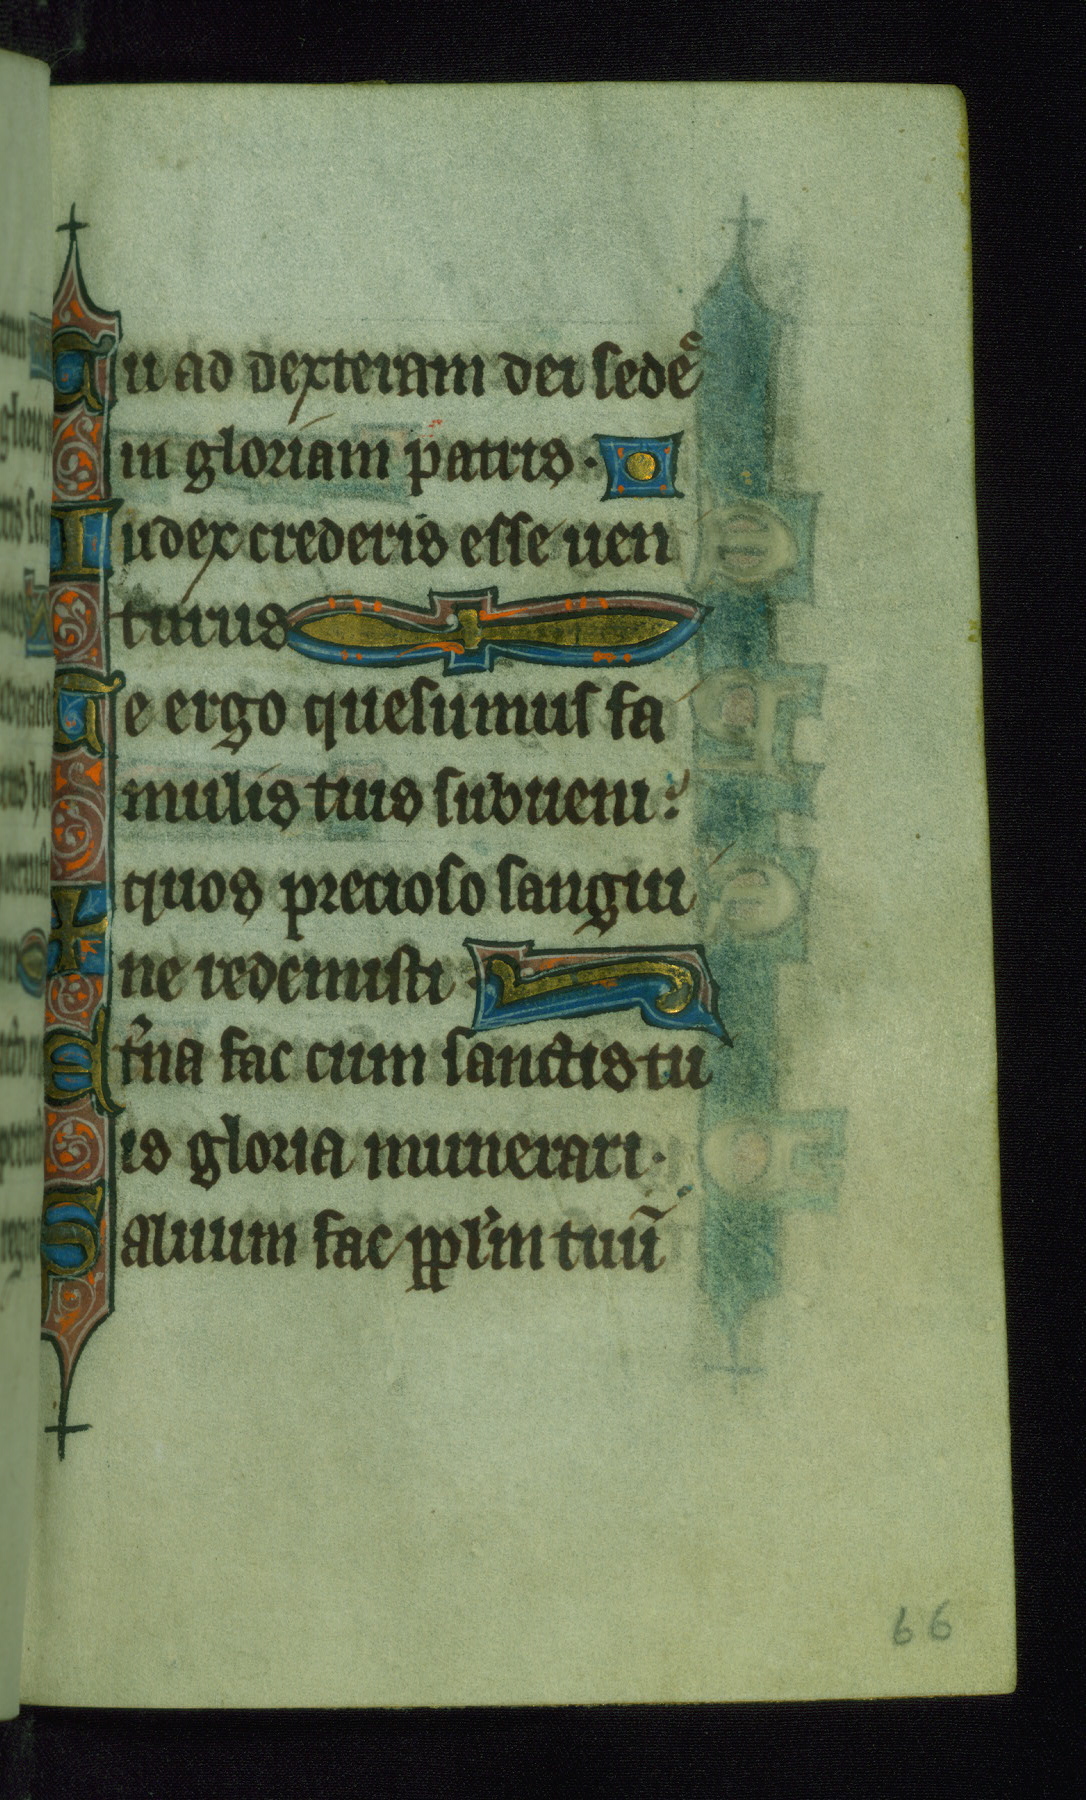 Tu ad dexteram dei sedeˢ
in gloriam patris ·
Iudex crederis esse uen
turus
Te ergo quesumus fa
mulis tuis subueni :
quos precioso sangui
ne redemisti ·
Et̾na fac cum sanctis tu
is gloria munerari ·
Saluum fac pp̄l̄m tuū
66